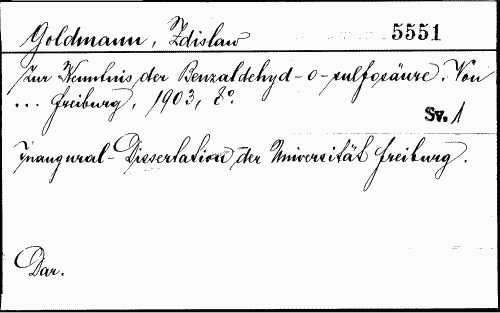 Goldmann, Zdislaw 5551
Zur Kenntnis der Benzaldehyd-o-sulfosäure. Von
... Freiburg, 1903, 8°.
Sv. 1
Inaugural-Dissertation der Universität Freiburg.
Dar.